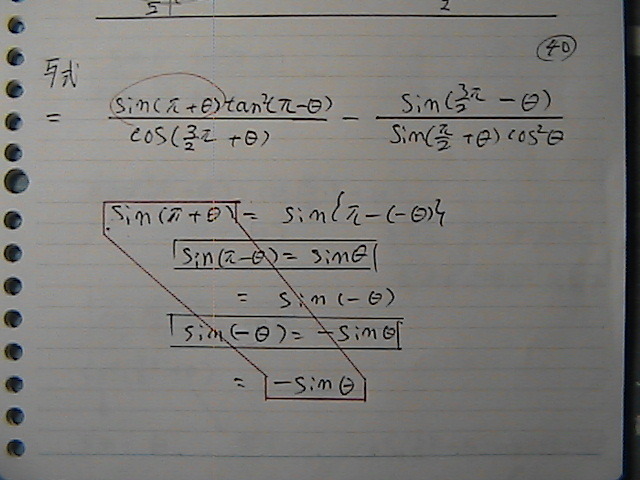 2
40
与式
= sin(π+θ)tan²(π-θ) / cos(3/2 π + θ) - sin(3/2 π - θ) / sin(π/2 + θ) cos²θ
sin(π+θ) = sin{π-(-θ)}
sin(π-θ) = sinθ
= sin(-θ)
sin(-θ) = -sinθ
= -sinθ